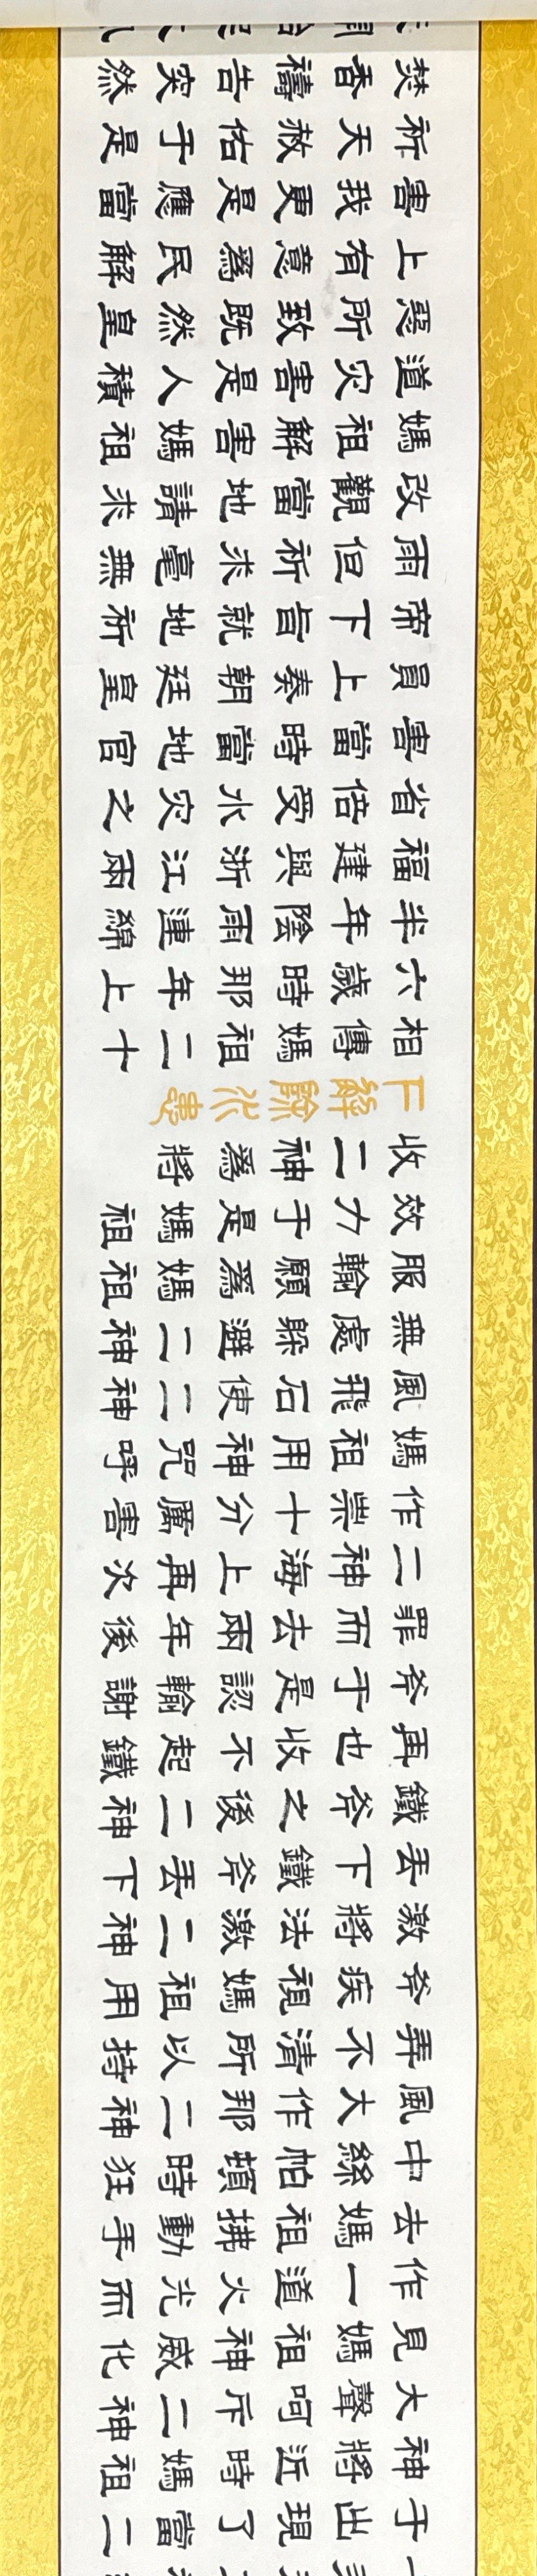 于出現了當二
神將近時媽祖
大聲呵斥二神
見媽祖神威化
作一道火光而
去媽祖拂動手
中絲帕頓時狂
風大作那二神
弄不清所以持
斧疾視媽祖用
激將法激二神
丟下鐵斧丟下
鐵斧之後二神
再也收不起鐵
斧于是認輸謝
罪而去兩年後
二神海上再次
作崇十分厲害
媽祖用神咒呼
風飛石使二神
無處躲避二神
服輸願為媽祖
效力于是媽祖
收二神為將
下解除水患
相傳媽祖二十
六歲時那年上
半年陰雨連綿
福建與浙江兩
省倍受水灾之
害當時當地官
員上奏朝廷皇
帝下旨就地祈
雨但祈求毫無
改觀當地請求
媽祖解害媽祖
道灾害是人積
惡所致既然皇
上有意為民解
害我更是應當
祈天赦佑于是
焚香禱告突然